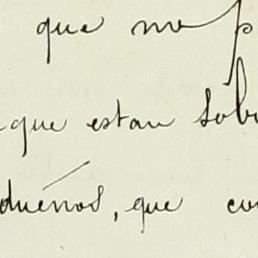 que me p
que estan sob
dueños, que co